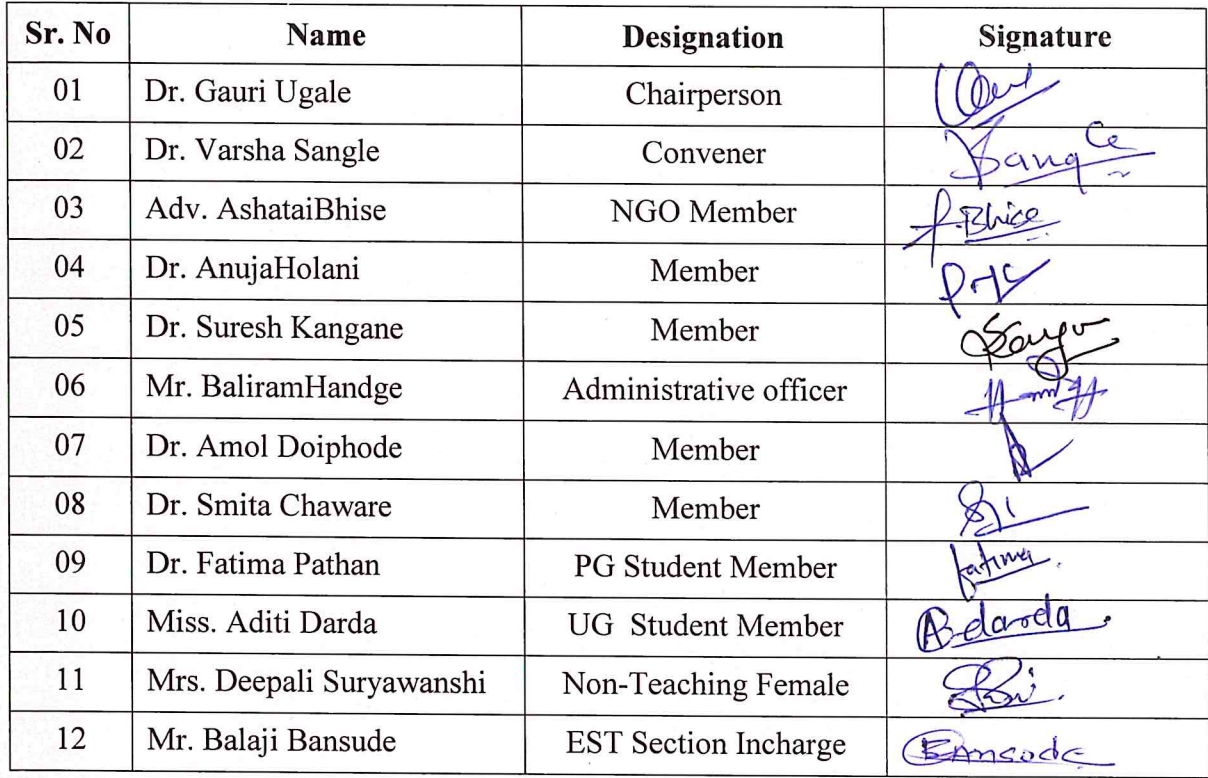 Sr. No Name Designation Signature
01 Dr. Gauri Ugale Chairperson
02 Dr. Varsha Sangle Convener
03 Adv. AshataiBhise NGO Member A.Bhise
04 Dr. AnujaHolani Member
05 Dr. Suresh Kangane Member
06 Mr. BaliramHandge Administrative officer
07 Dr. Amol Doiphode Member
08 Dr. Smita Chaware Member
09 Dr. Fatima Pathan PG Student Member fatima
10 Miss. Aditi Darda UG Student Member
11 Mrs. Deepali Suryawanshi Non-Teaching Female
12 Mr. Balaji Bansude EST Section Incharge